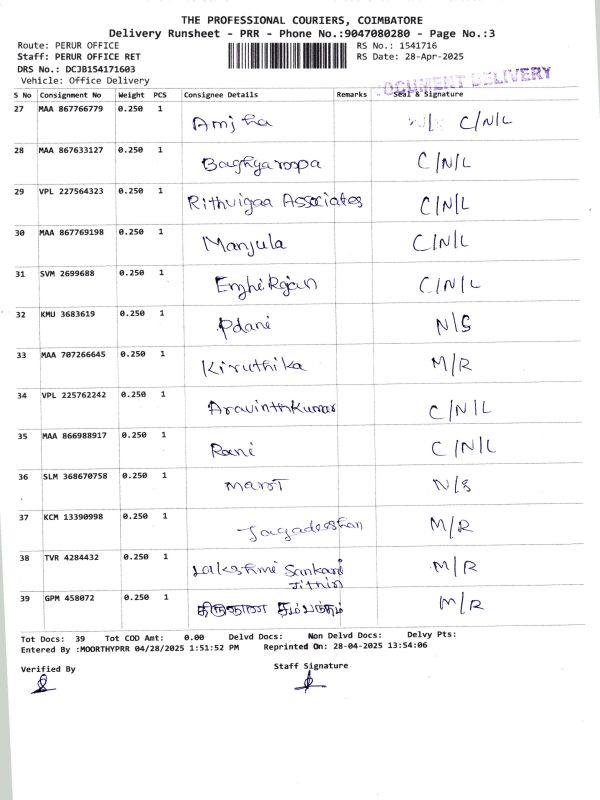 THE PROFESSIONAL COURIERS, COIMBATORE
Delivery Runsheet - PRR - Phone No.:9047080280 - Page No.:3
Route: PERUR OFFICE RS No.: 1541716
Staff: PERUR OFFICE RET RS Date: 28-Apr-2025
DRS No.: DCJB154171603
Vehicle: Office Delivery
DOCUMENT DELIVERY
S No Consignment No Weight PCS Consignee Details Remarks Seal & Signature
27 MAA 867766779 0.250 1 C/N/L
28 MAA 867633127 0.250 1 Baghyaroopa C/N/L
29 VPL 227564323 0.250 1 Rithvigaa Associates C/N/L
30 MAA 867769198 0.250 1 Manjula C/N/L
31 SVM 2699688 0.250 1 C/N/L
32 KMU 3683619 0.250 1 N/S
33 MAA 707266645 0.250 1 Kiruthika M/R
34 VPL 225762242 0.250 1 Aravinthkumar C/N/L
35 MAA 866988917 0.250 1 Rani C/N/L
36 SLM 368670758 0.250 1 N/S
37 KCM 13390998 0.250 1 Jagadeeshan M/R
38 TVR 4284432 0.250 1 Lakshmi Sankari M/R
Jithin
39 GPM 458072 0.250 1 திருஞான சம்பந்தம் M/R
Tot Docs: 39 Tot COD Amt: 0.00 Delvd Docs: Non Delvd Docs: Delvy Pts:
Entered By :MOORTHYPRR 04/28/2025 1:51:52 PM Reprinted On: 28-04-2025 13:54:06
Verified By Staff Signature